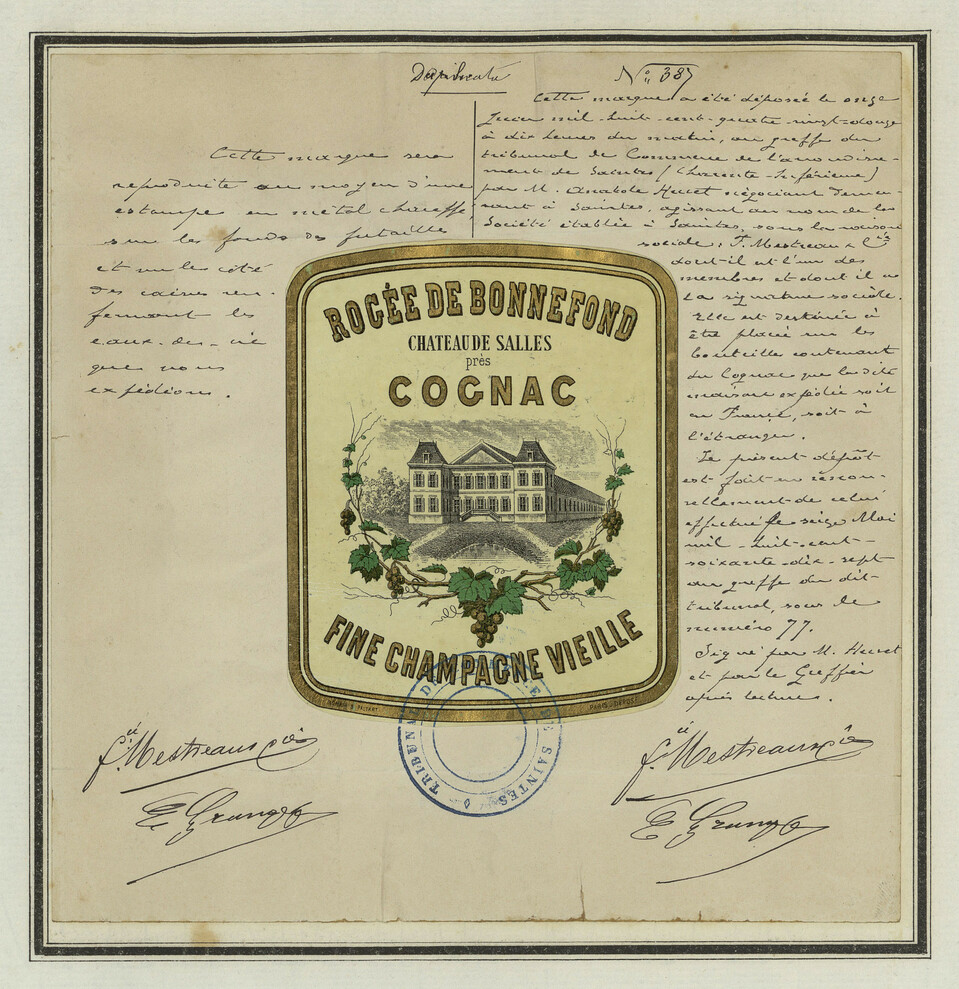 Duplicata
N° 387
Cette marque sera
reproduite au moyen d'une
estampe en métal chauffé
sur les fonds des futailles
et sur le côté
des caisses ren-
fermant les
eaux-de-vie
que nous
expédions.
Cette marque a été déposée le onze
Juin mil-huit-cent-quatre-vingt-douze
à dix heures du matin, au greffe du
tribunal de Commerce de l'arrondisse-
ment de Saintes (Charente-Inférieure)
par M. Anatole Huret négociant demeu-
rant à Saintes, agissant au nom de la
Société établie à Saintes, sous la raison
sociale: F. Mestreau & Cie
dont il est l'un des
membres et dont il a
la signature sociale.
Elle est destinée à
être placée sur les
bouteilles contenant
du Cognac que la dite
maison expédie soit
en France, soit à
l'étranger.
Le présent dépôt
est fait en renou-
vellement de celui
effectué le seize Mai
mil-huit-cent-
soixante-dix-sept
au greffe du dit-
tribunal, sous le
numéro 77.
Signé par M. Huret
et par le Greffier
après lecture.
ROGÉE DE BONNEFOND
CHATEAU DE SALLES
près
COGNAC
FINE CHAMPAGNE VIEILLE
PARIS - DÉPOSÉ
TRIBUNAL DE SAINTES
F. Mestreau & Cie
F. Mestreau & Cie